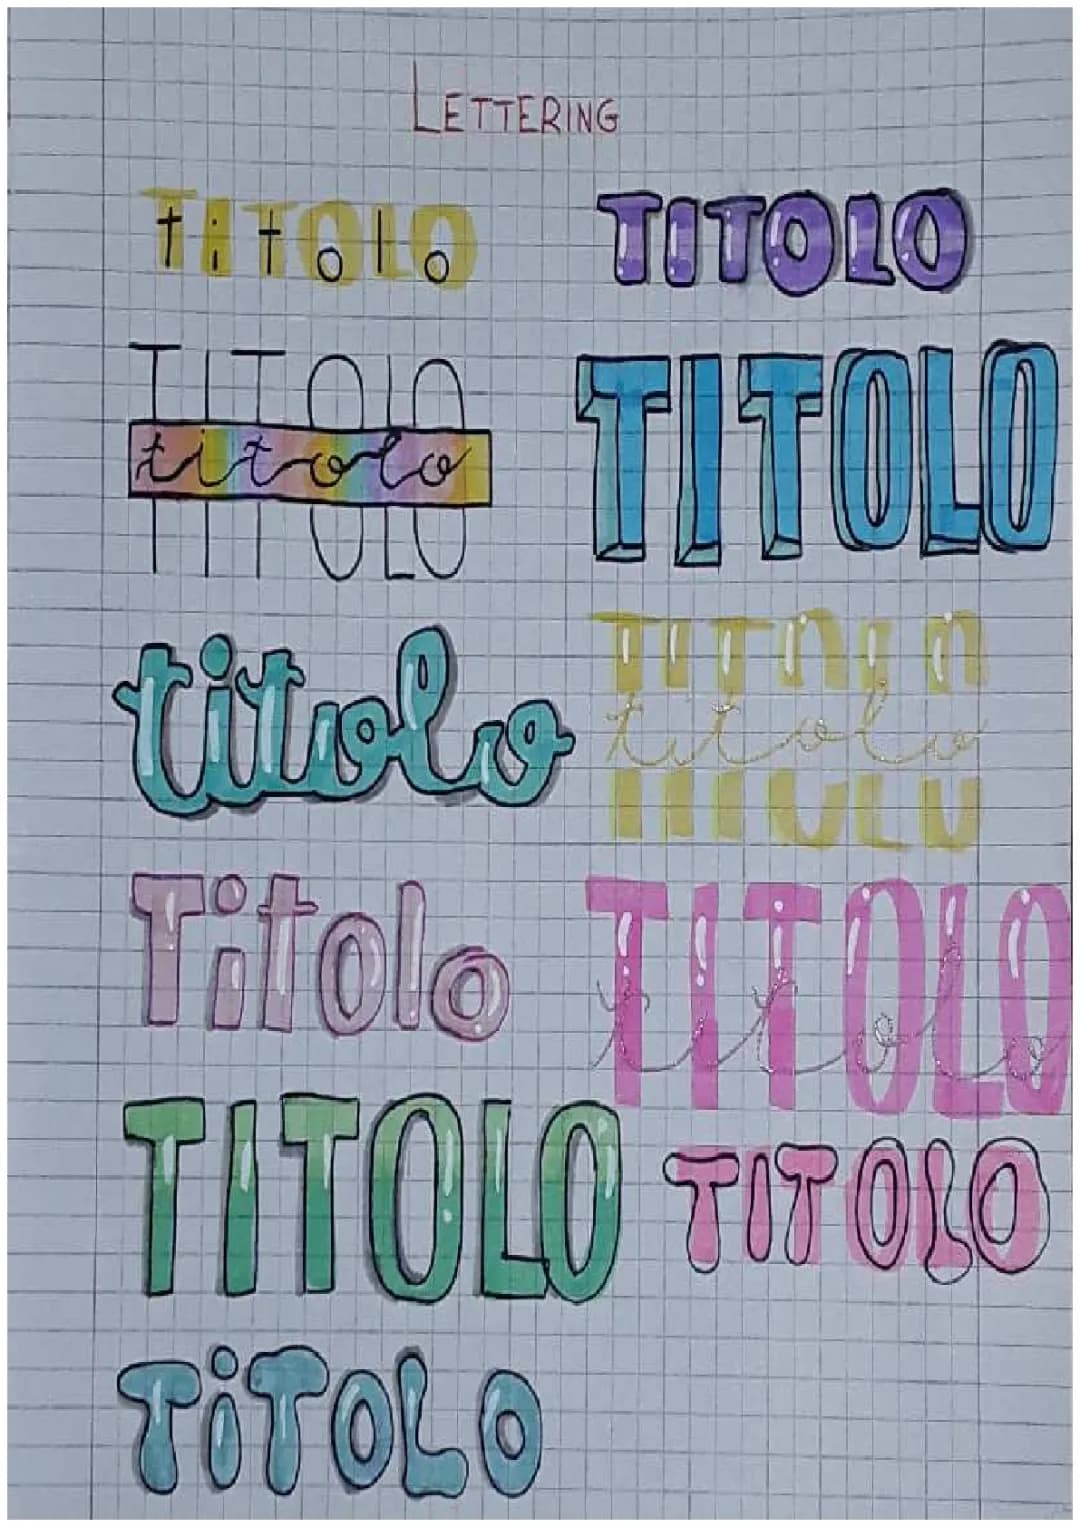 LETTERING
TITOLO
titolo
TITOLO
TITOLO
titolo
TITOLO
titolo
TITOLO
titolo
Titolo
TITOLO
titolo
TITOLO
TITOLO
TiTOLO